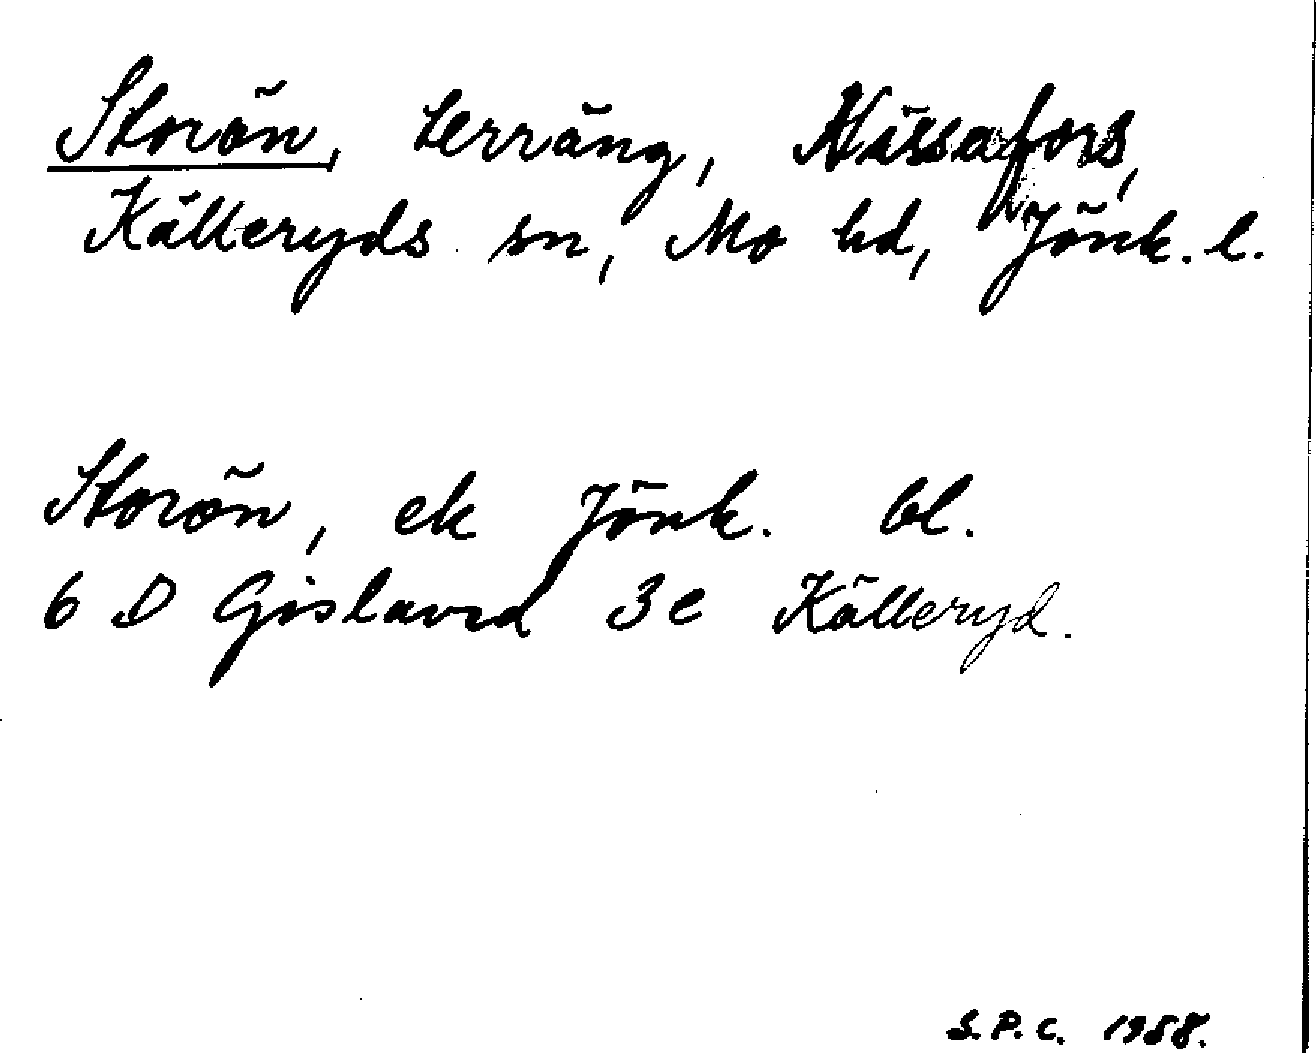 Storön, terräng, Nissafors,
Kålleryds sn, Mo hd, Jönk. l.
Storön, ek Jönk. bl.
6 D Gislaved 3e Kålleryd.
S.P.C. 1958.